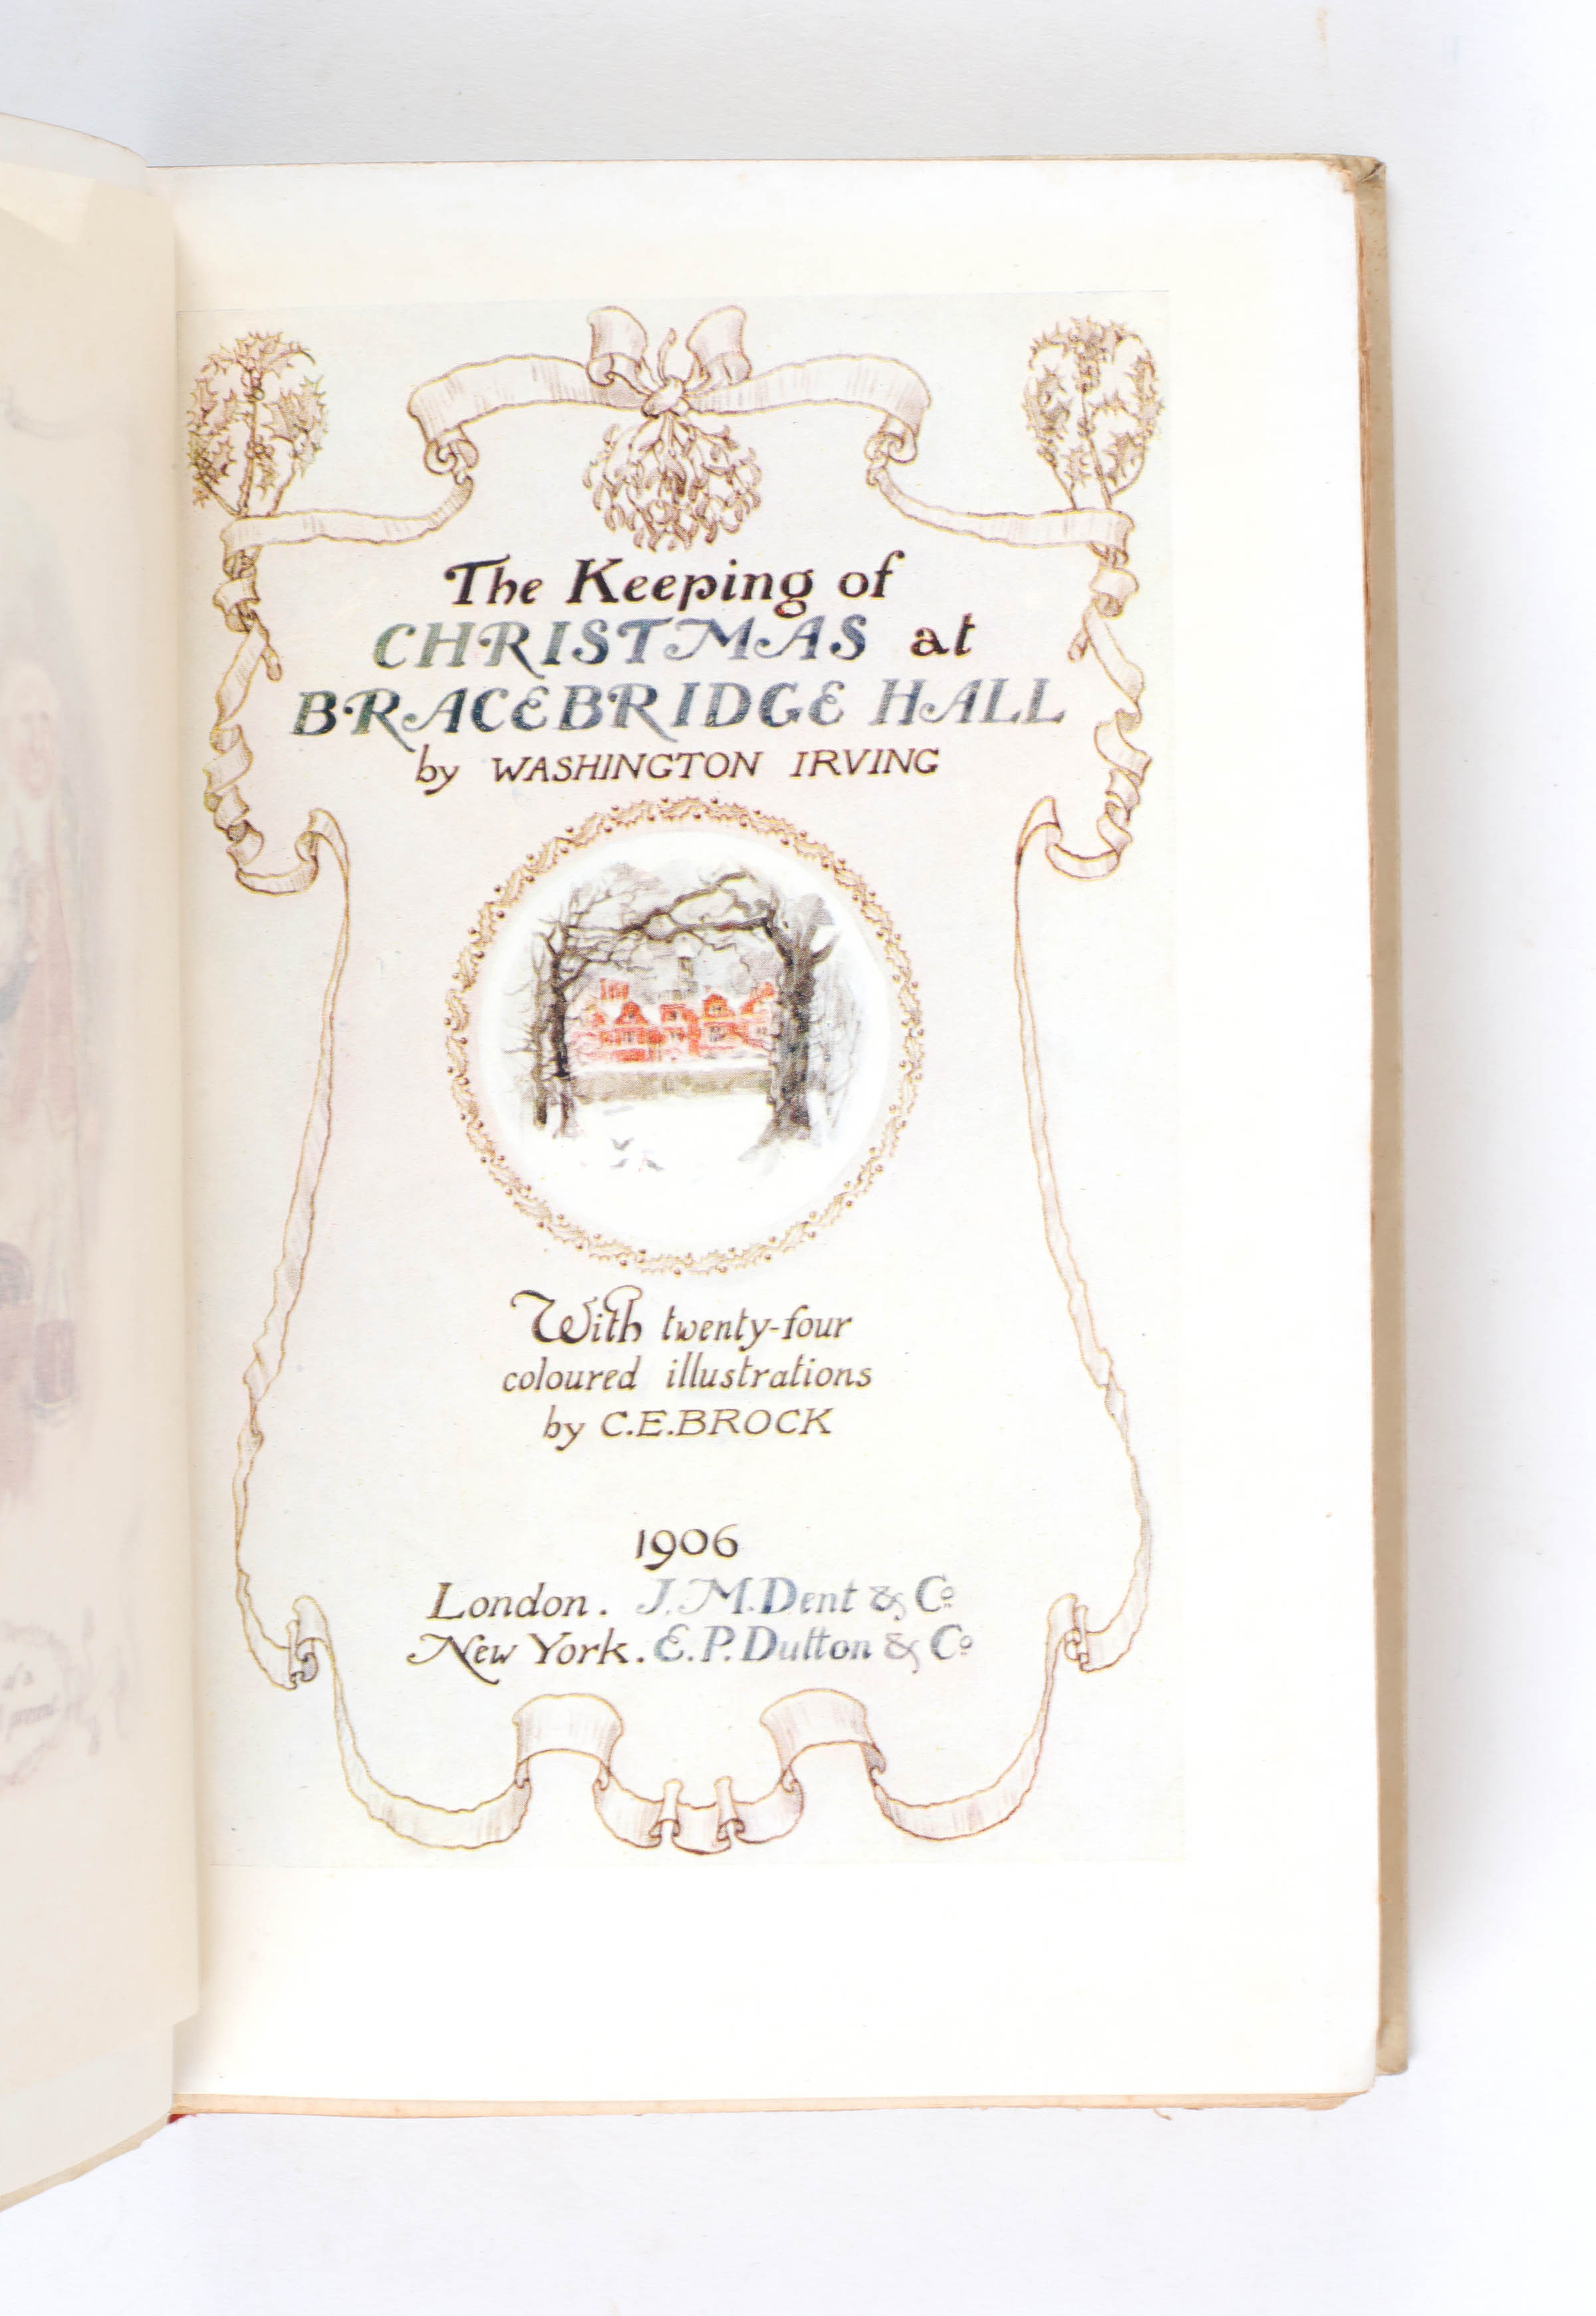 The Keeping of
CHRISTMAS at
BRACEBRIDGE HALL
by WASHINGTON IRVING
With twenty-four
coloured illustrations
by C.E.BROCK
1906
London. J.M.Dent & Co
New York. E.P.Dutton & Co